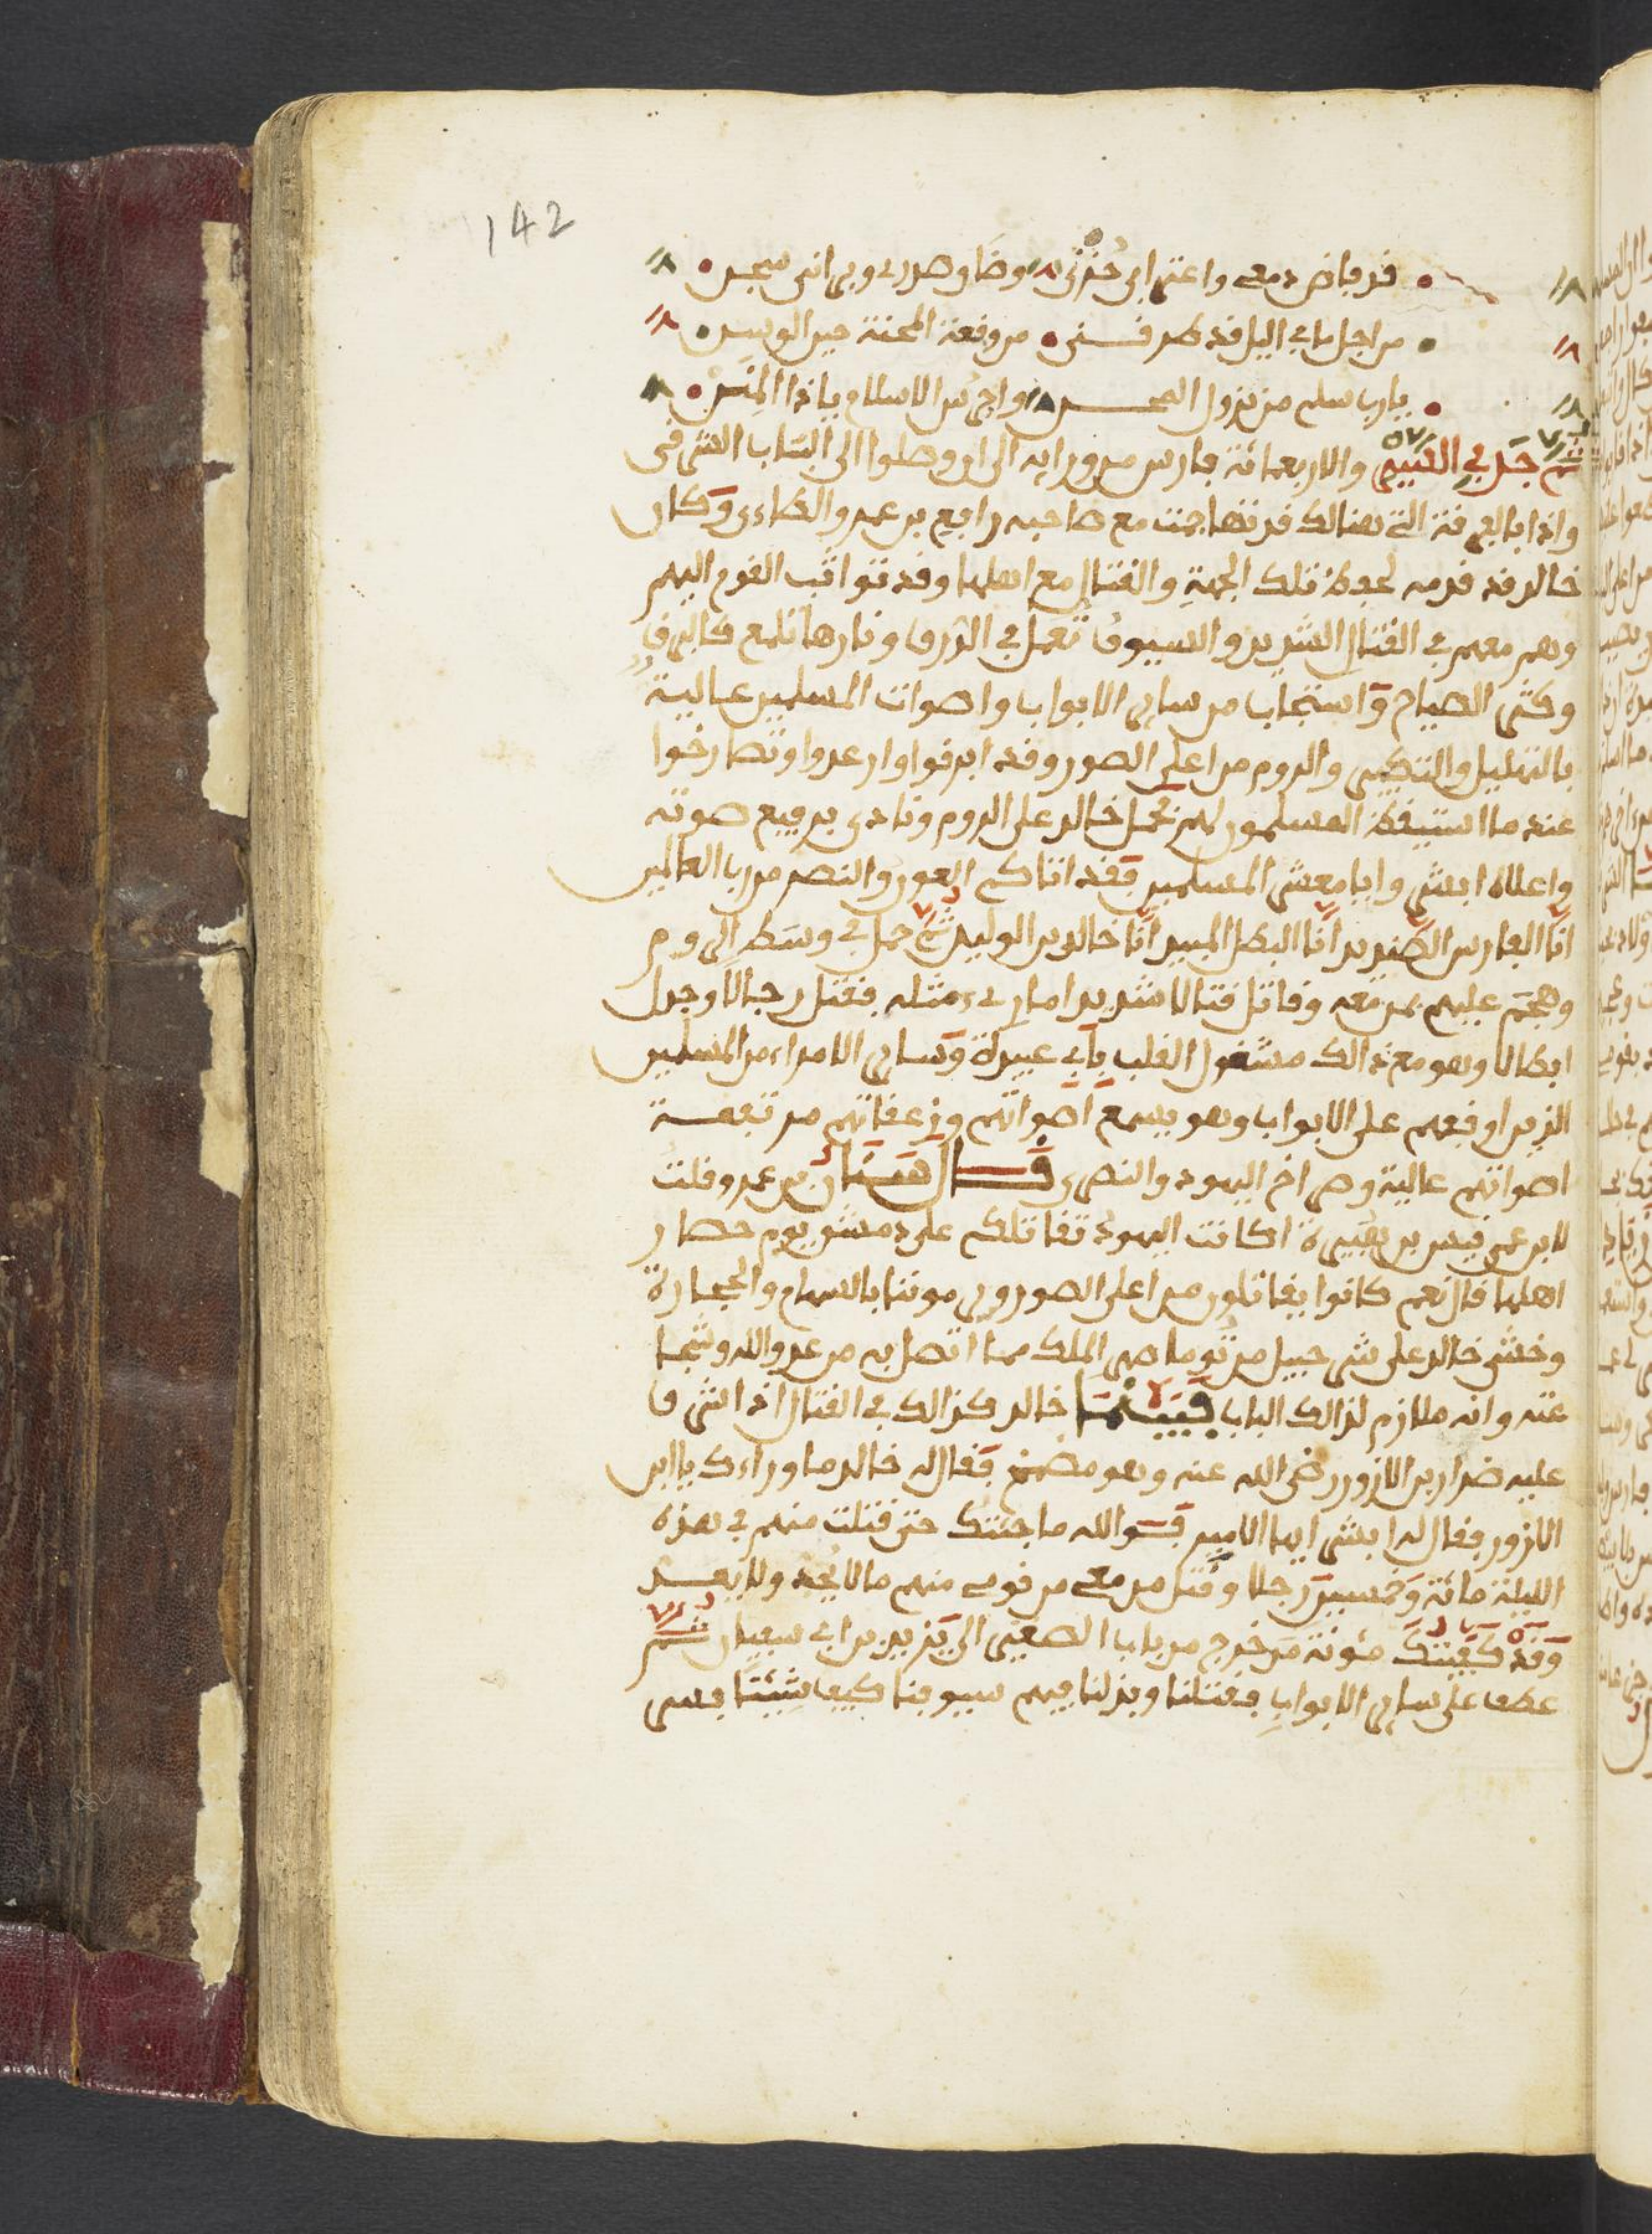 142
قد فاض دمعي واعتراني حزني وضاق صدري وبراني شجن
من اجل ما في اليل قد طرقـــني من وقعة المحنة حين الوسن
يارب سلم من نزول المحـــن واحرس الاسلام ياذا المنن
ثم جد في السير والاربعمائة فارس من ورايه الى ان وصلوا الى الباب الشرقي
واذا بالفرقة التي هنالك قد تهاجمت مع صاحبه رافع بن عمرو الطاءى وكان
خالد قد قدمه لحفظ تلك الجهة والقتال مع اهلها وقد تواثب القوم اليهم
وهم معهم في القتال الشديد والسيوف تعمل في الدرق ونارها تلمع كالبرق
وكثر الصياح واستجاب من ساير الابواب واصوات المسلمين عالية
بالتهليل والتكبير والروم من اعلى الصور وقد ابرقوا وارعدوا وتصارخوا
عند ما استيقظ المسلمون لهم فحمل خالد على الروم ونادى برفيع صوته
واعلاه ابشروا يا معشر المسلمين فقد اتاكم العون والنصر من رب العالمين
انا الفارس الصنديد انا البطل المبيد انا خالد بن الوليد ثم حمل في وسط الروم
وهجم عليهم بمن معه وقاتل قتالا شديدا ما رىء مثله فقتل رجالا وجدل
ابطالا وهو مع ذالك مشغول القلب بابي عبيدة وساير الامراء من المسلمين
الذين اوقفهم على الابواب وهو يسمع اصواتهم وزعقاتهم مرتفعـــة
اصواتهم عالية وصراخ اليهود والنصرى قـــال سنان بن عمرو قلت
لابن عمي قيس بن هبيرة اكانت اليهود تقاتلكم على دمشق يوم حصار
اهلها قال نعم كانوا يقاتلون من اعلى الصور ويرموننا بالسهام والحجارة
وخشى خالد على شرحبيل من توما صهر الملك مما اتصل به من عدو الله وشجا
عته وانه ملازم لذالك الباب فبينما خالد كذالك في القتال اذ اشرف
عليه ضرار بن الازور رضي الله عنه وهو مضمخ فقال له خالد ما وراءك يا ابن
الازور فقال له ابشر ايها الامير فوالله ما جئتك حتى قتلت منهم في هذه
الليلة مائة وخمسين رجلا وقتل من معي من قومي منهم مالا يحد ولا يعـــد
وقد كفيتك مئونة من خرج من باب الصغير الى يزيد بن ابي سفيان ثم
عطف على ساير الابواب فقتلنا وبذلنا فيهم سيوفنا كيف شئنا فسر